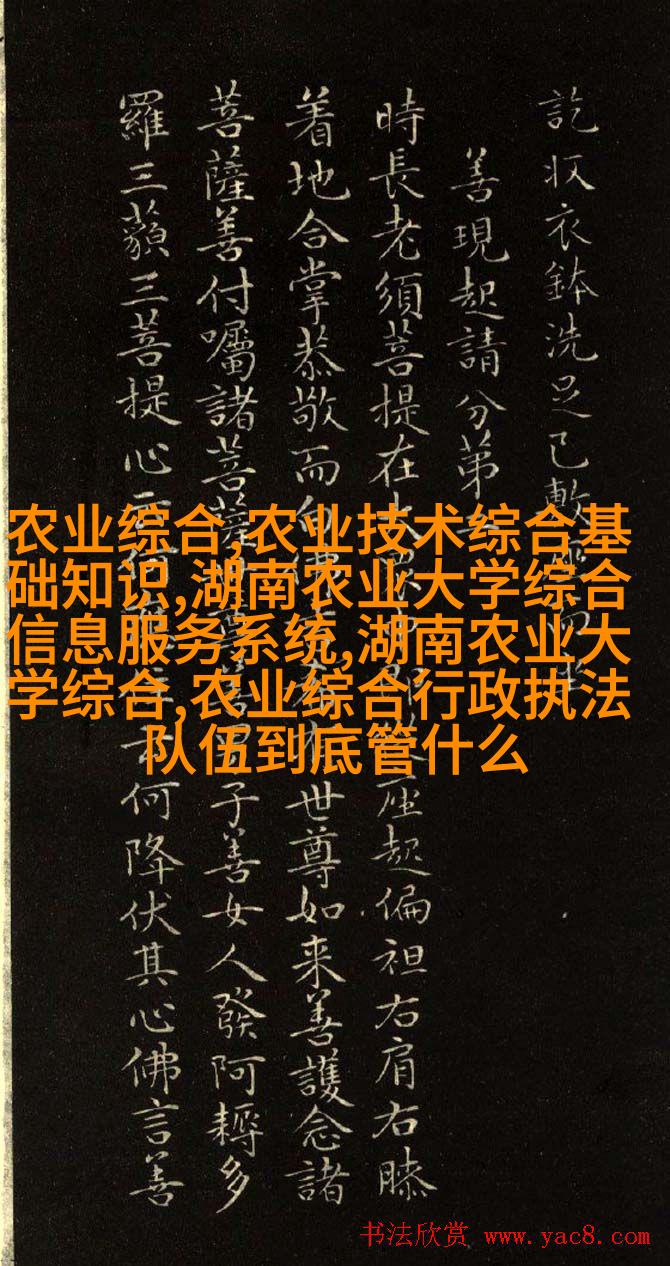 訖收衣鉢洗足已敷
善現起請分第
時長老須菩提在座起偏袒右肩右膝
着地合掌恭敬而白世尊如来善護念諸
菩薩善付囑諸菩薩子善女人發阿耨多
羅三藐三菩提心何降伏其心佛言善
农业综合,农业技术综合基
础知识,湖南农业大学综合
信息服务系统,湖南农业大
学综合,农业综合行政执法
队伍到底管什么
书法欣赏 www.yac8.com